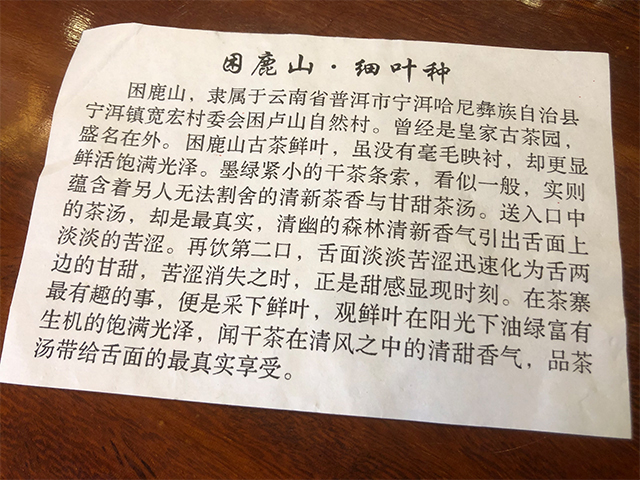 困鹿山·细叶种
困鹿山，隶属于云南省普洱市宁洱哈尼彝族自治县
宁洱镇宽宏村委会困卢山自然村。曾经是皇家古茶园，
盛名在外。困鹿山古茶鲜叶，虽没有毫毛映衬，却更显
鲜活饱满光泽。墨绿紧小的干茶条索，看似一般，实则
蕴含着另人无法割舍的清新茶香与甘甜茶汤。送入口中
的茶汤，却是最真实，清幽的森林清新香气引出舌面上
淡淡的苦涩。再饮第二口，舌面淡淡苦涩迅速化为舌两
边的甘甜，苦涩消失之时，正是甜感显现时刻。在茶寨
最有趣的事，便是采下鲜叶，观鲜叶在阳光下油绿富有
生机的饱满光泽，闻干茶在清风之中的清甜香气，品茶
汤带给舌面的最真实享受。